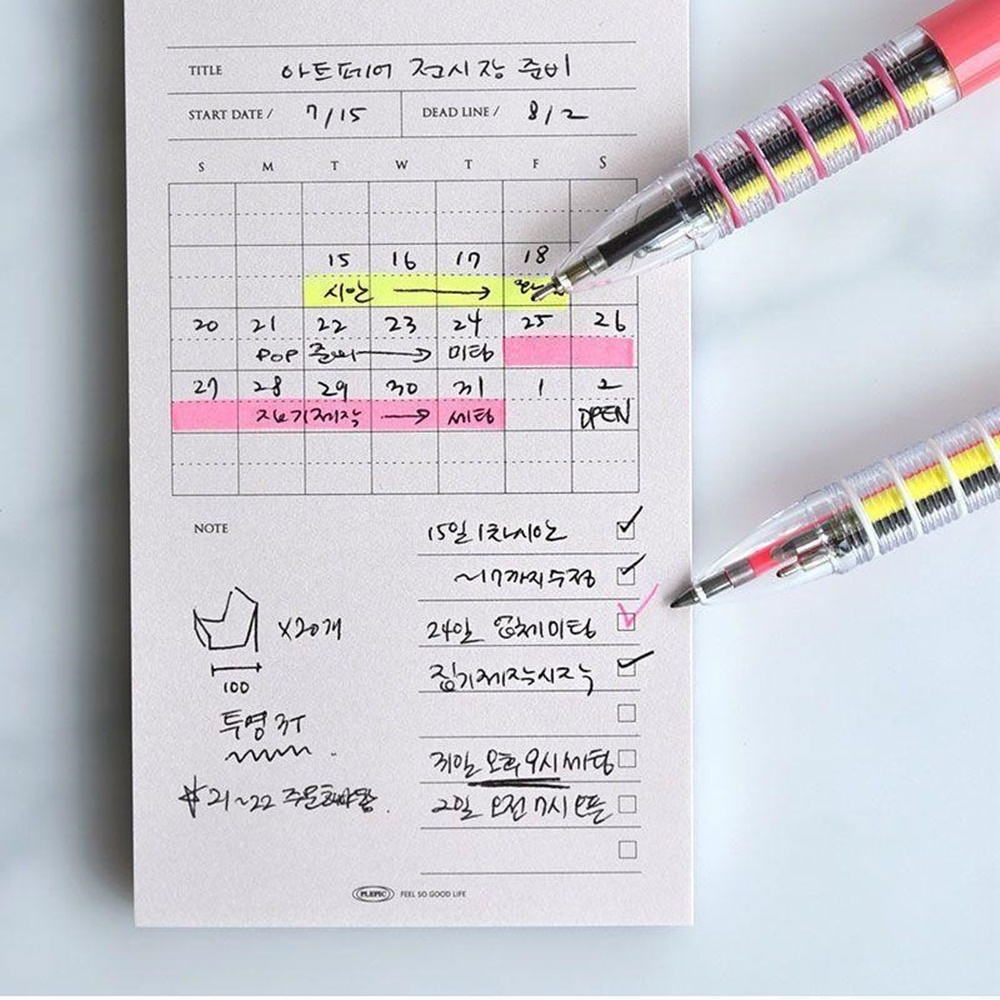 TITLE 아트페어 전시장 준비
START DATE / 7/15 DEAD LINE / 8/2
S M T W T F S
15 16 17 18
시안 →
20 21 22 23 24 25 26
POP 준비 → 미팅
27 28 29 30 31 1 2
집기제작 → 세팅 OPEN
NOTE
15일 1차시안
~17까지 수정
24일 업체미팅
집기제작시작
31일 오후 9시 세팅
2일 오전 7시 오픈
×20개
100
투명 3T
21~22 주문해야함.
PLEPIC FEEL SO GOOD LIFE